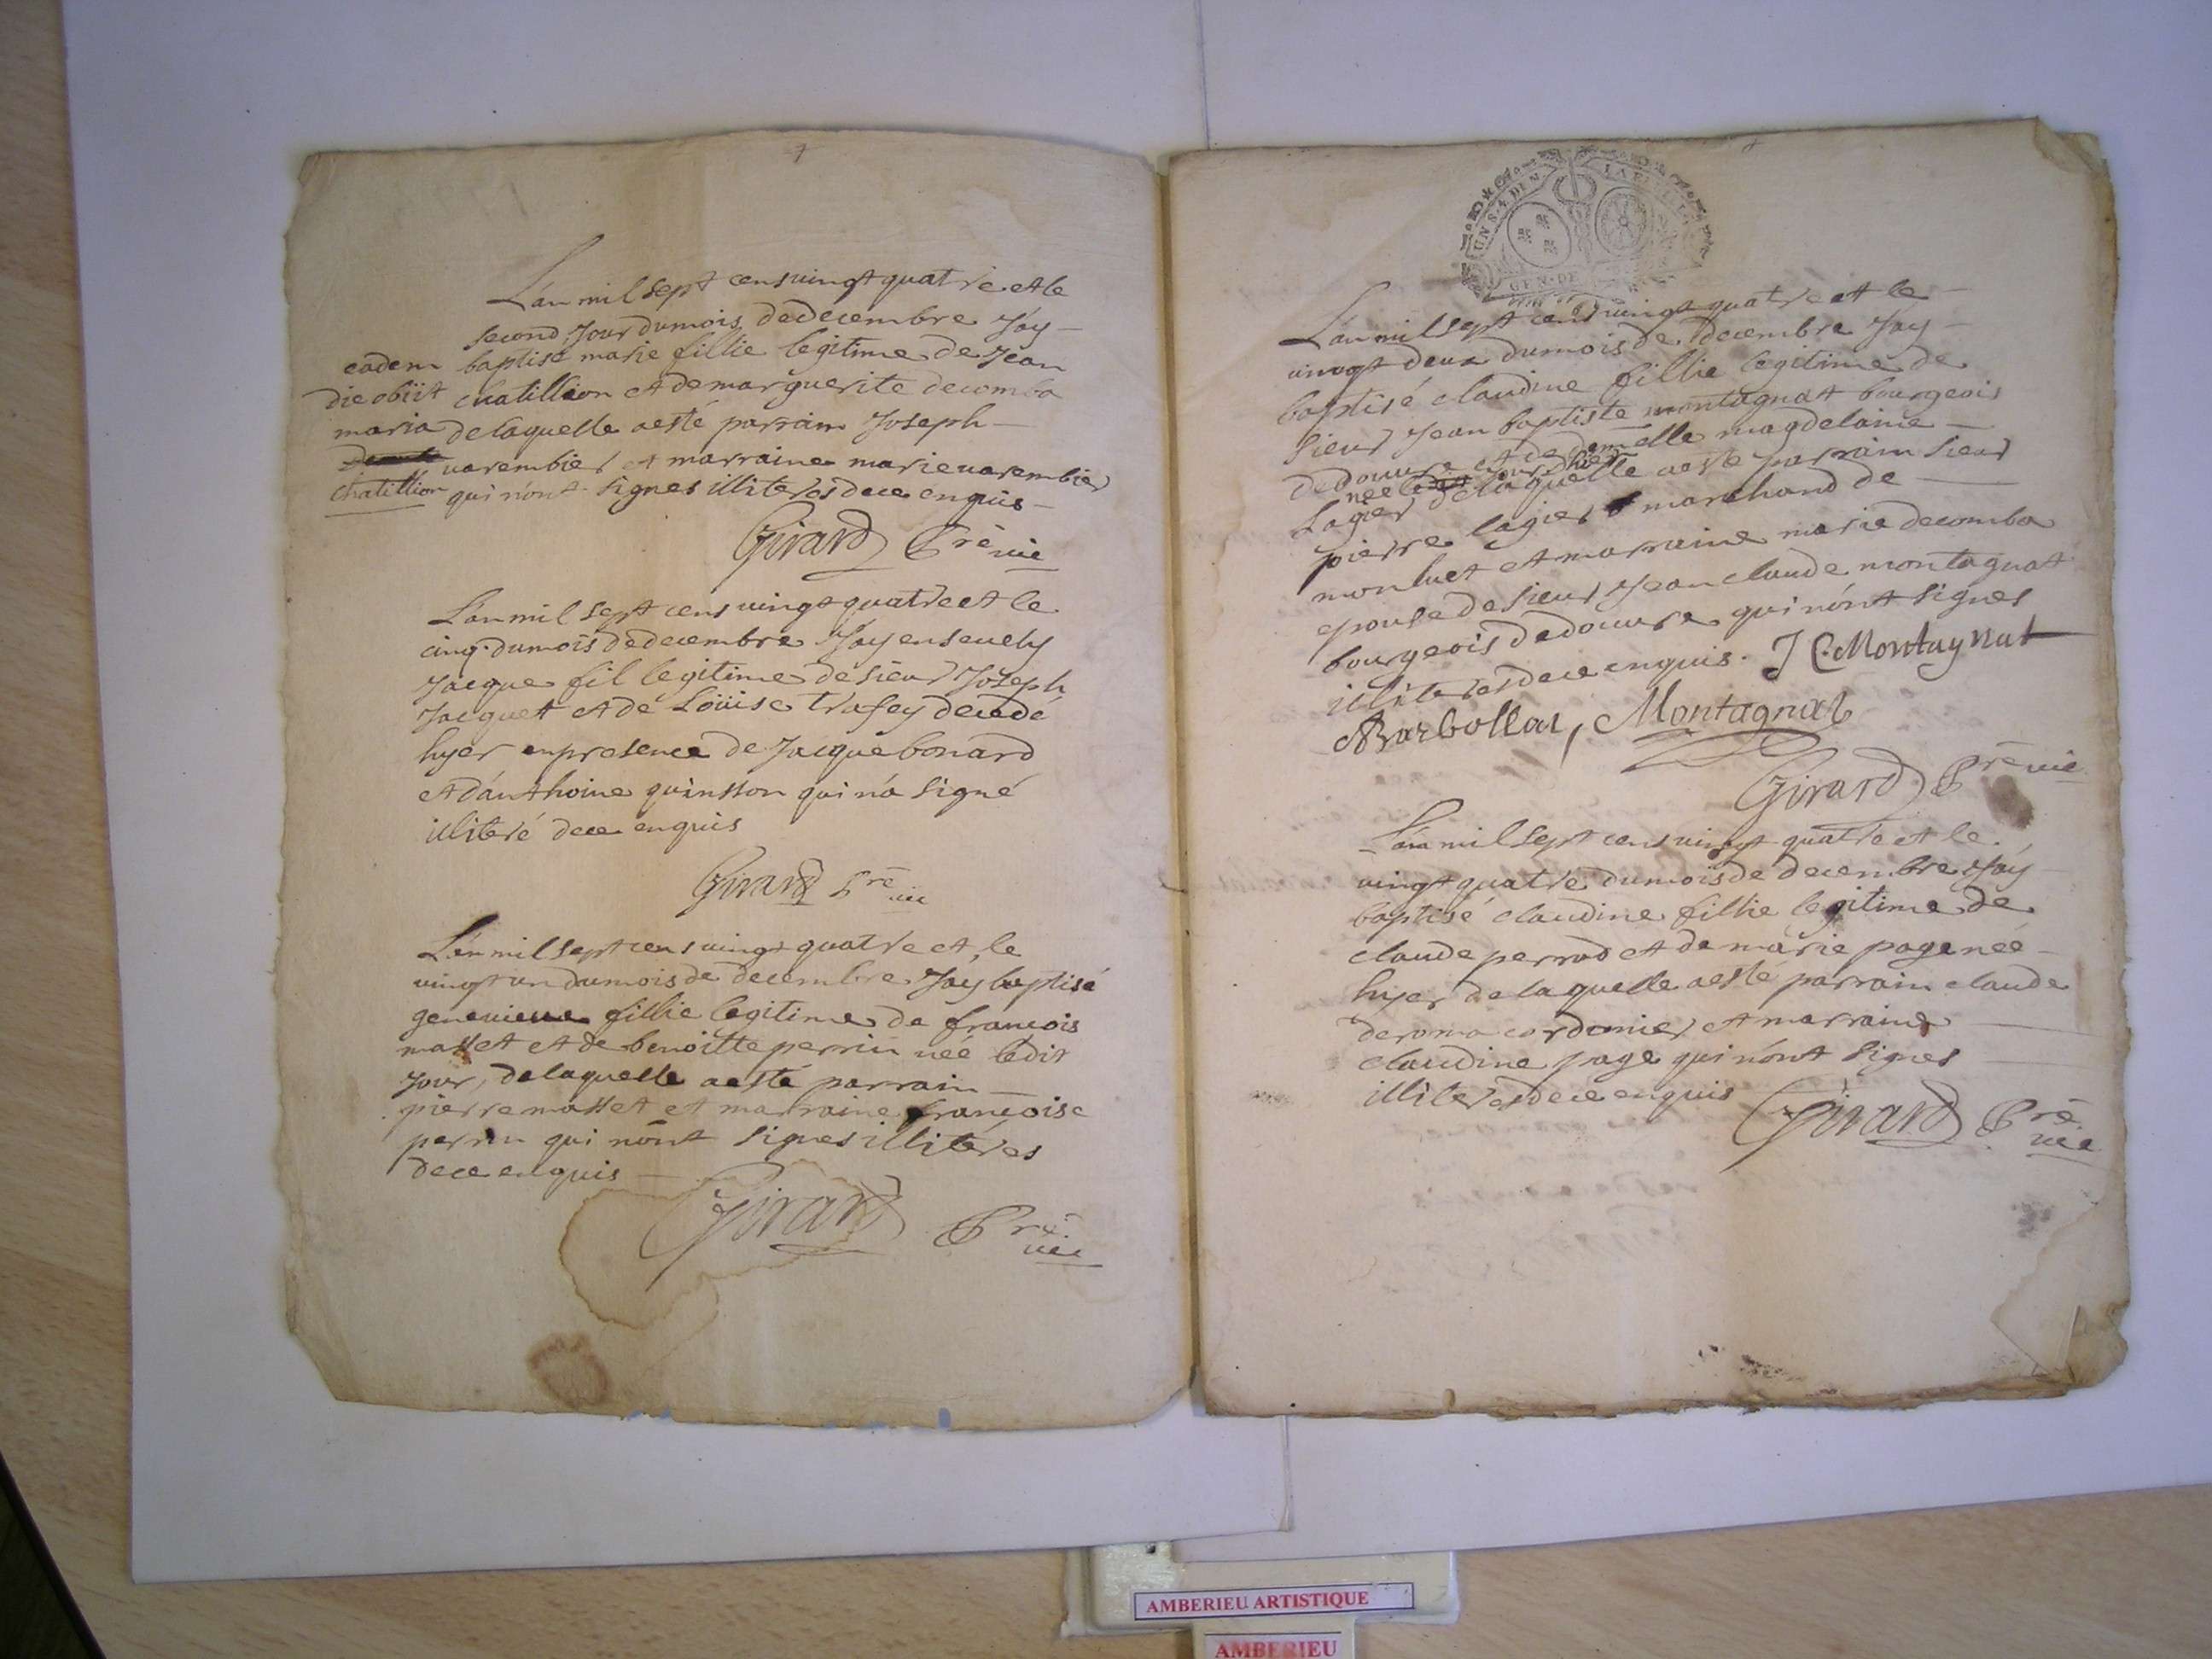 L'an mil sept cens vingt quatre et le
second Jour du mois de decembre J'ay
baptisé marie fillie legitime de Jean
chatillion et de marguerite decomba
de laquelle a esté parrain Joseph
varembier et marraine marie varembier
qui n'ont signes illiteres de ce enquis
eadem
die obiit
maria
chatillion
Girard Pre vic
L'an mil sept cens vingt quatre et le
cinq du mois de decembre J'ay ensevely
Jacque fil legitime de sieur Joseph
Jacquet et de Loüise trafey decedé
hyer en presence de Jacque bonard
et d'anthoine quinsson qui n'a signé
illiteré de ce enquis
Girard Pre vic
L'an mil sept cens vingt quatre et le
vingt un du mois de decembre J'ay baptisé
genevieve fillie legitime de françois
masset et de benoitte perrin née ledit
Jour, de laquelle a esté parrain
pierre masset et marraine françoise
perrin qui n'ont signes illitéres
de ce enquis
Girard Pre vic
UN S. 4 DEN.
GEN. DE
L'an mil sept cens vingt quatre et le
vingt deux du mois de decembre J'ay
baptisé claudine fillie legitime de
sieur Jean baptiste montagnat bourgeois
de douvre et de demelle magdelaine
née
Lagier de laquelle a este parrain sieur
pierre lagier marchand de
monluet et marraine marie decomba
epouse de sieur Jean claude montagnat
bourgeois de douvre qui n'ont signes
illiteres de ce enquis. J C. Montagnat
Barbollat, Montagnat
Girard Pre vic
L'an mil sept cens vingt quatre et le
vingt quatre du mois de decembre J'ay
baptisé claudine fillie legitime de
claude perrod et de marie page née
hyer de laquelle a este parrain claude
deroma cordonier et marraine
claudine page qui n'ont signes
illiteres de ce enquis
Girard Pre vic
AMBERIEU ARTISTIQUE
AMBERIEU